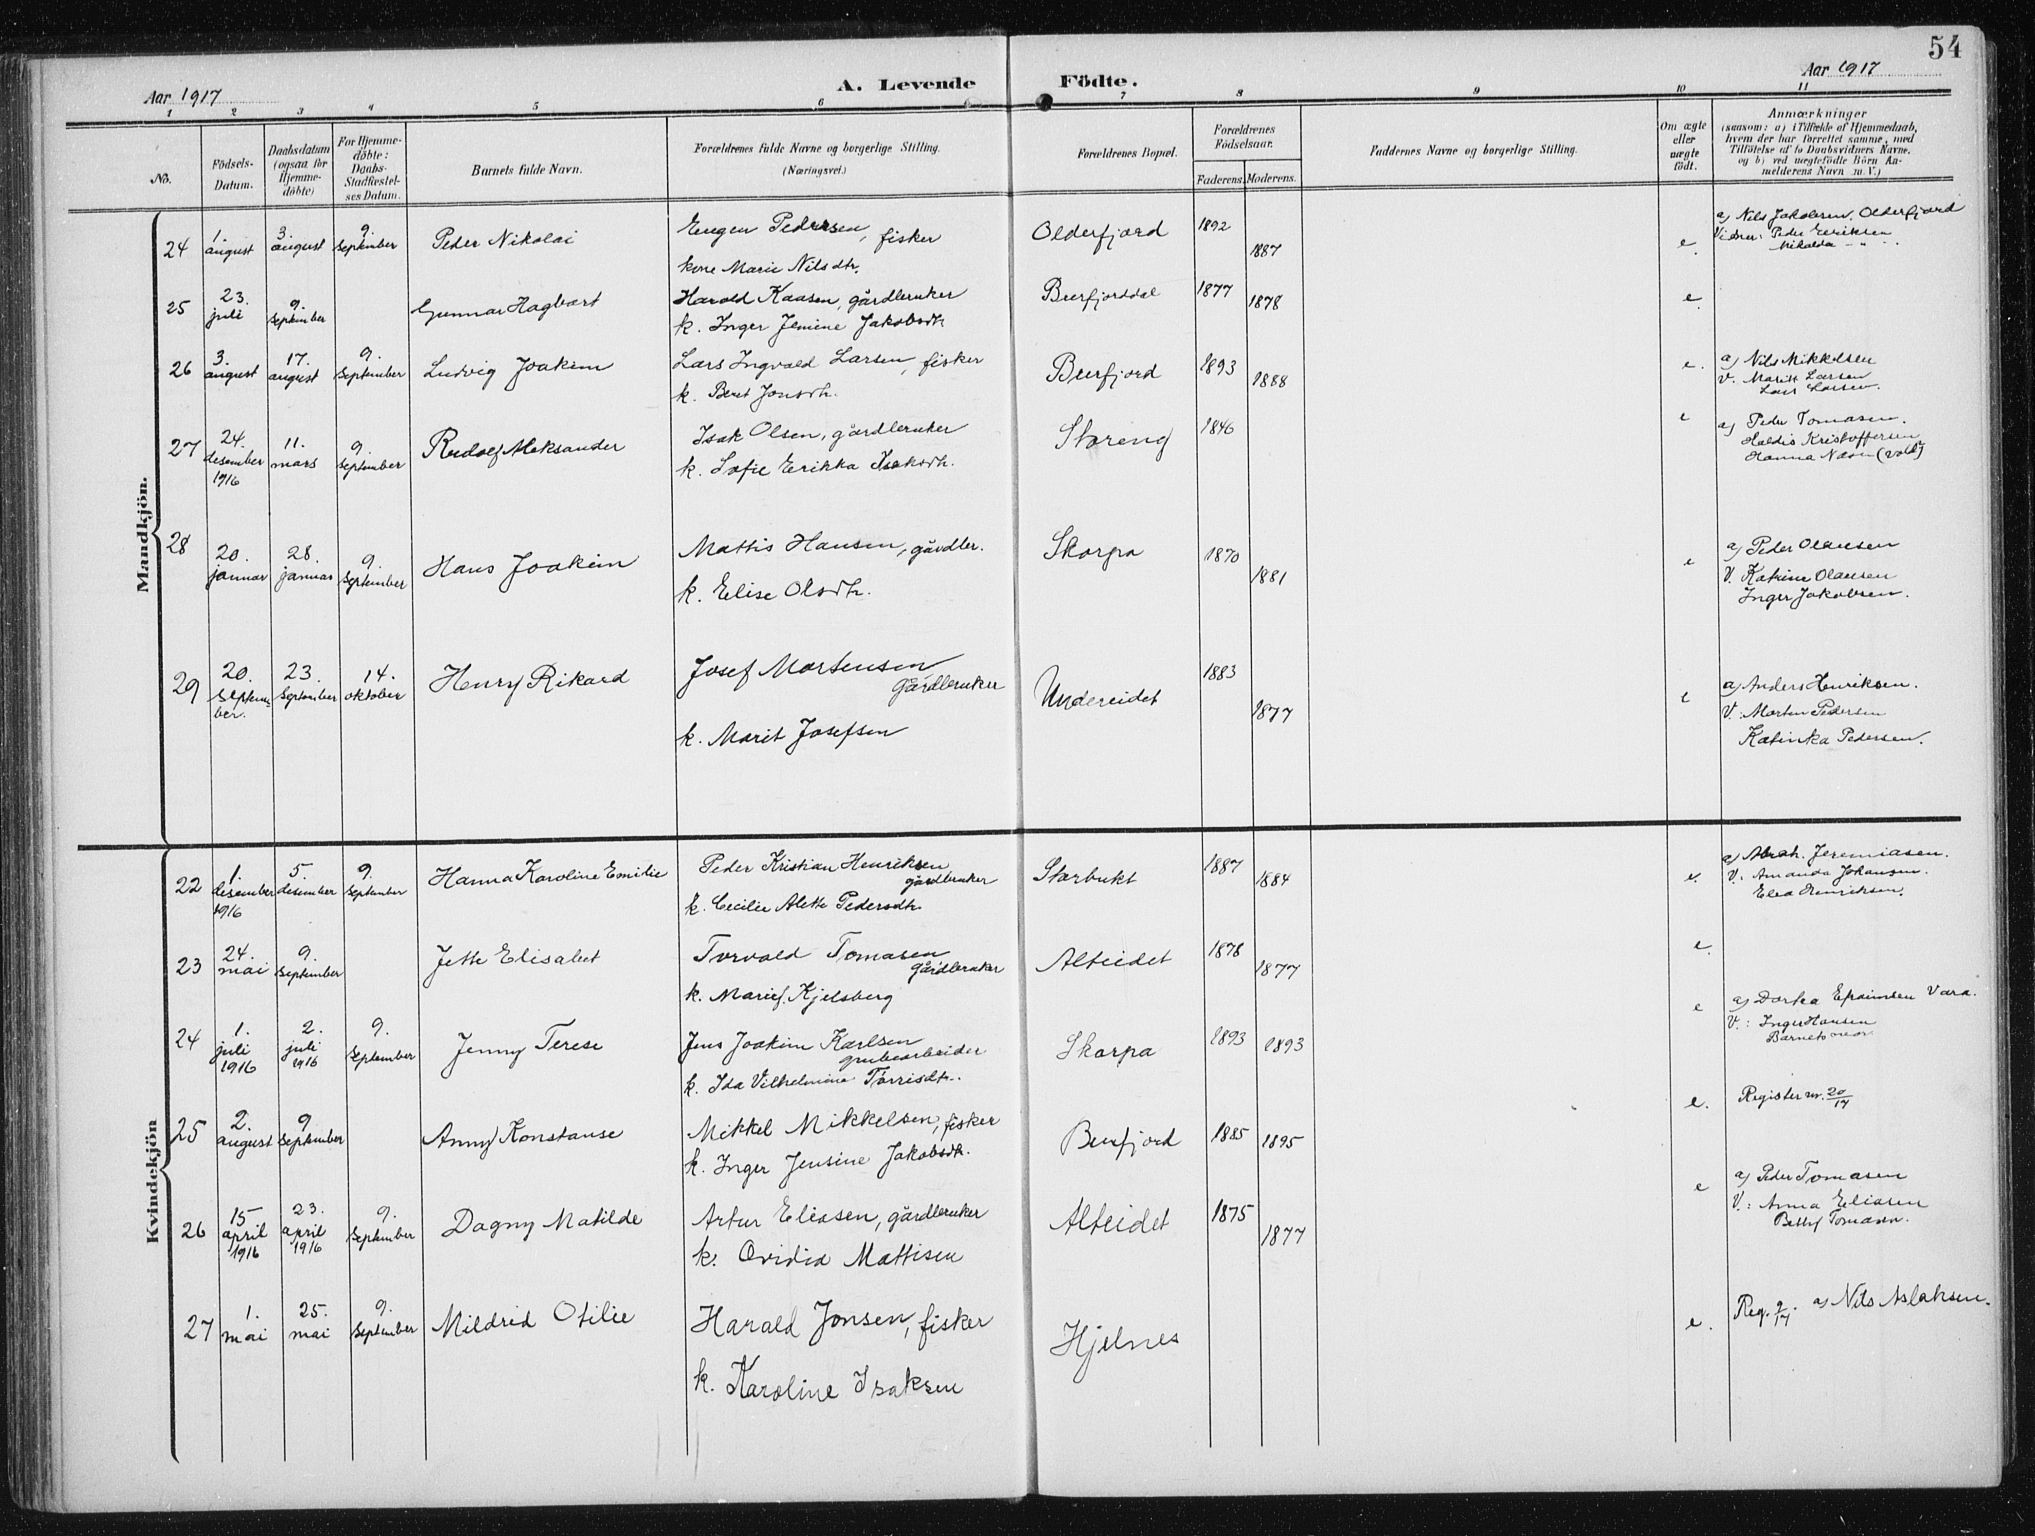 54
Aar 1917
A. Levende Födte.
Aar 1917
1 2 3 4 5 6 7 8 9 10 11
No.
Födsels-Datum.
Daabsdatum (ogsaa for Hjemmedöbte)
For Hjemmedöbte: Daabs-Stadfæstelses Datum.
Barnets fulde Navn.
Forældrenes fulde Navne og borgerlige Stilling.
(Næringsvei.)
Forældrenes Bopæl.
Forældrenes Födselsaar.
Faderens. Moderens.
Faddernes Navne og borgerlige Stilling.
Om ægte eller uægte født.
Anmærkninger
(saasom: a) i Tilfælde af Hjemmedaab, hvem der har forrettet samme, med Tilföielse af to Daabsvidners Navne, og b) ved uægtefödte Börn Anmelderens Navn m. V.)
Mandkjön.
24 1. august 3. august 9. September Peder Nikolai Eugen Pedersen, fisker Olderfjord 1892 e. a) Nils Jakobsen, Olderfjord
kone Marie Nilsdtr. 1887 Vidner: Peder Eeriksen
Nikolda - " -
25 23. juli 9. September Gunnar Hagbart Harold Kaasen, gårdbruker Burfjorddal 1877 1878 e.
k. Inger Jemine Jakobsdtr
26 3. august 17. august 9. September Ludvig Joakim Lars Ingvald Larsen, fisker Burfjord 1893 1888 e. a) Nils Mikkelsen
k. Beret Jonsdtr. V. Maritt Larsen
Lars Larsen.
27 24. desember 1916 11. mars 9. September Rudolf Aleksander Isak Olsen, gårdbruker Storeng 1846 e a) Peder Tomasen.
k. Sofie Erikka Isaksdtr. Haldis Kristoffersen
Hanna Næsen (vold)
28 20. januar 28. januar 9. September Hans Joakim Mattis Hansen, gårdbr. Skorpa 1870 1881 e a) Peder Olausen
k. Elise Olsdtr. V. Katrine Olausen
Inger Jakobsen.
29 20. September. 23. September 14. oktober Henry Rikard Josef Mortensen gårdbruker Undereidet 1883 1877 e a) Anders Henriksen.
k. Marit Josefsen V. Morten Pedersen
Katinka Pedersen.
Kvindekjön
22 1. desember 1916 5. desember 9. September Hanna Karoline Emilie Peder Kristian Henriksen gårdbruker Storbukt 1887 1884 e. a) Abrah. Jeremiasen.
k. Cecilie Alette Pedersdtr. V. Amanda Johansen.
Elea Henriksen.
23 24. mai 9. September Jette Elisabet Torvald Tomasen gårdbruker Alteidet 1878 1877 e.
k. Marie Kjelsberg
24 1. juli 1916 2. juli 1916 9. September Jenny Terese Jens Joakim Karlsen grubearbeider Skorpa 1893 1893 e a) Dorka Efraimsen Vara.
k. Ida Vilhelmine Torrisdtr. V.: Inger Hansen
Barnets mor
25 2. august 9 September Anny Konstanse Mikkel Mikkelsen, fisker Burfjord 1885 1895 e. Register nr. 20/17
k. Inger Jensine Jakobsdtr.
26 15 april 1916 23. april 1916 9. September Dagny Matilde Artur Eliasen, gårdbruker Alteidet 1875 1877 e a) Peder Tomasen
k. Ovidia Mattisen V.: Anna Eliasen
Betty Tomasen.
27 1. mai 25. mai 9. September Mildrid Otilie Harald Jonsen, fisker Hjelnes e. Reg. 9/17. a) Nils Aslaksen.
k. Karoline Isaksen